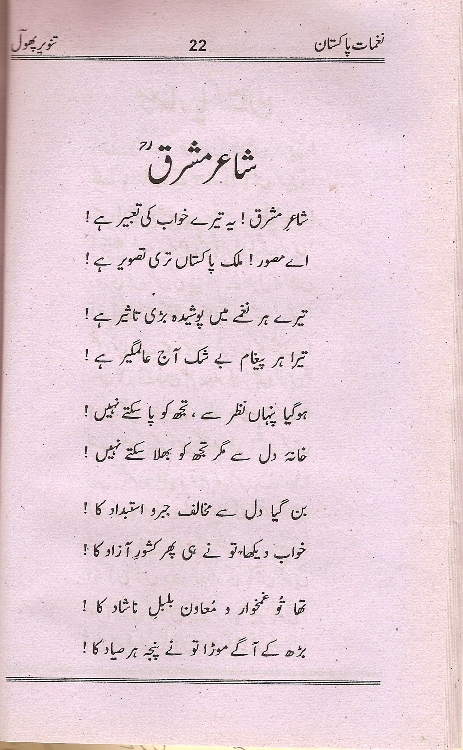 نغمات پاکستان 22 تنویر پھولؔ
شاعر مشرقؒ
شاعرِ مشرق ! یہ تیرے خواب کی تعبیر ہے !
اے مصور ! ملک پاکستاں تری تصویر ہے !
تیرے ہر نغمے میں پوشیدہ بڑی تاثیر ہے !
تیرا ہر پیغام بے شک آج عالمگیر ہے !
ہوگیا پنہاں نظر سے ، تجھ کو پا سکتے نہیں !
خانۂ دل سے مگر تجھ کو بھلا سکتے نہیں !
بن گیا دل سے مخالف جبرو استبداد کا !
خواب دیکھا، تو نے ہی پھر کشورِ آزاد کا !
تھا تُو غمخوار و معاون بلبلِ ناشاد کا !
بڑھ کے آگے موڑا تو نے پنجۂ ہر صیاد کا !